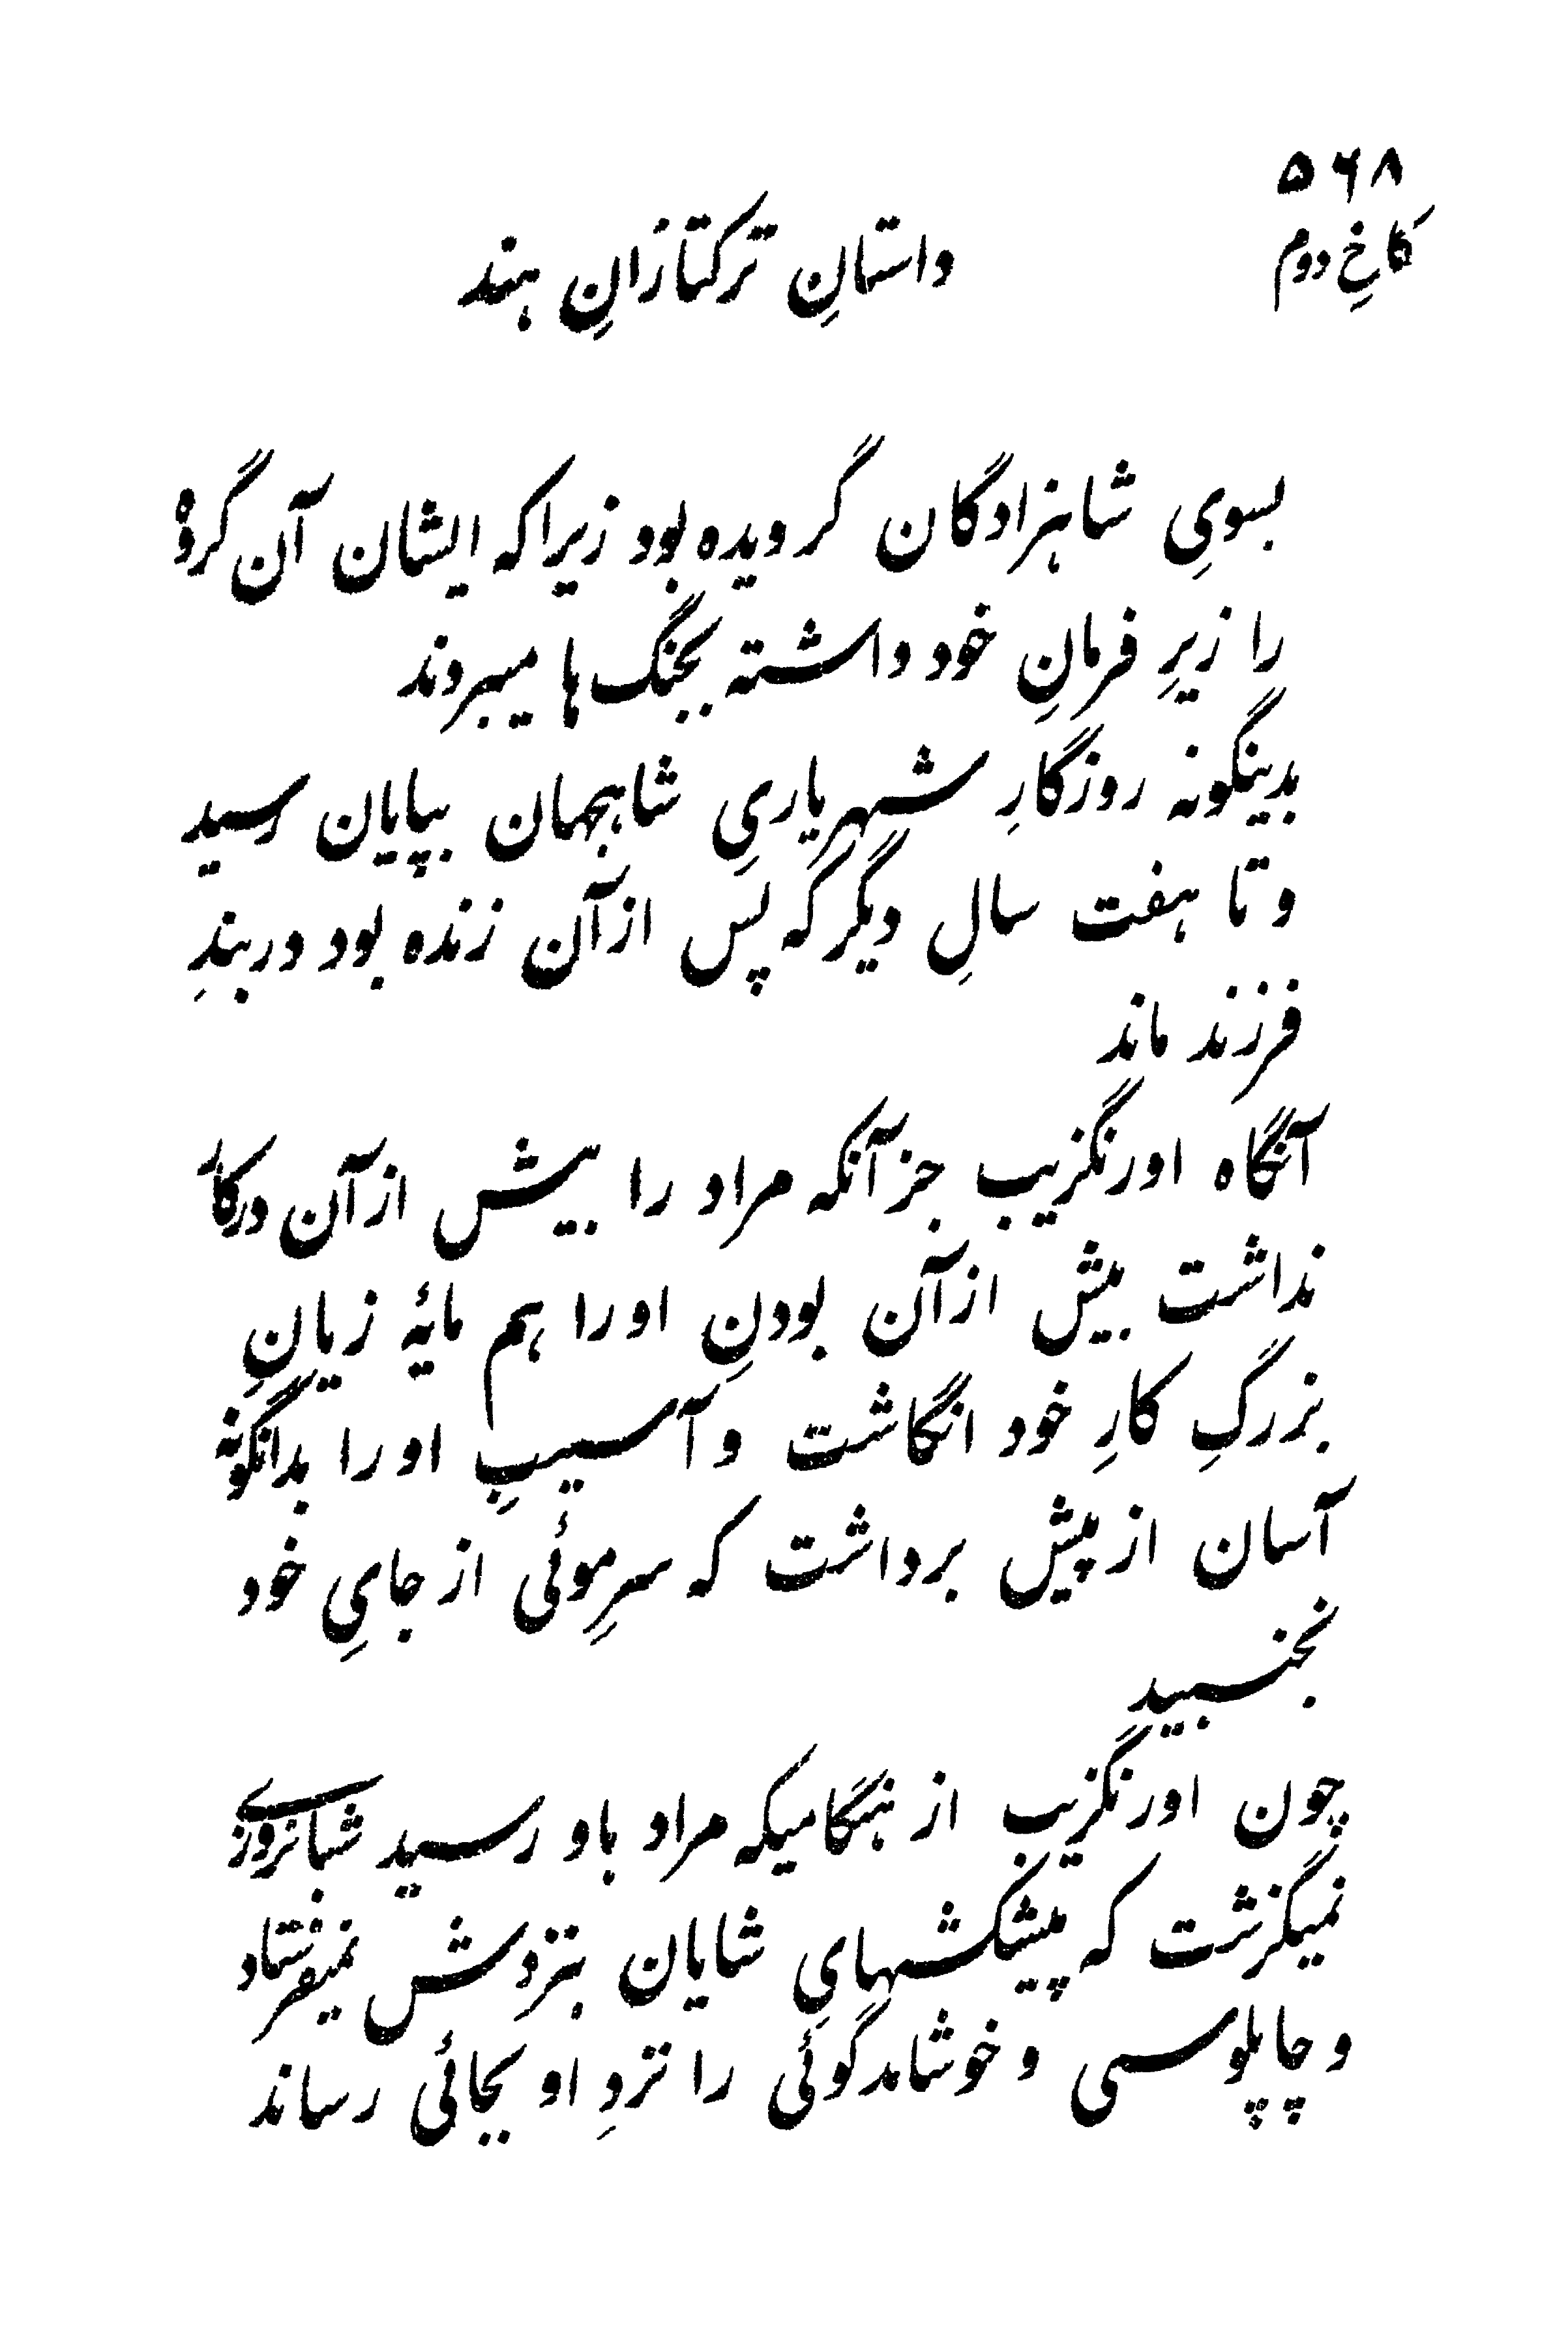 ۵۶۸
کاخِ دوم
داستانِ ترکتازانِ هند
بسویِ شاهزادگان گرویده بود زیراکه ایشان آن گروه
را زیرِ فرمانِ خود داشته بجنگ ها میبردند
بدینگونه روزگارِ شهریاریِ شاهجهان بپایان رسید
و تا هفت سالِ دیگر که پس ازآن زنده بود دربندِ
فرزند ماند
آنگاه اورنگزیب جزآنکه مراد را بیش ازآن درکار
نداشت بیش ازآن بودنِ اورا هم مایهٔ زیانِ
بزرگِ کارِ خود انگاشت و آسیبِ اورا بدانگونه
آسان از پیش برداشت که سرِموئی از جایِ خود
نجنبید
چون اورنگزیب از هنگامیکه مراد باو رسید شبانروزی
نمیگزشت که پیشکشهایِ شایان بنزدش نمیفرستاد
و چاپلوسی و خوشامدگوئی را نزدِ او بجائی رساند